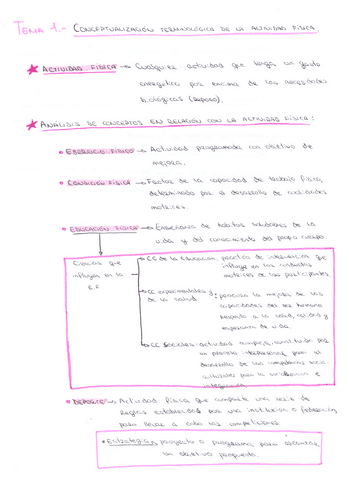 TEMA 1.- CONCEPTUALIZACIÓN TERMINOLÓGICA DE LA ACTIVIDAD FÍSICA
★ ACTIVIDAD FÍSICA → Cualquier actividad que tenga un gasto
energético por encima de las necesidades
biológicas (reposo).
★ ANÁLISIS DE CONCEPTOS EN RELACIÓN CON LA ACTIVIDAD FÍSICA:
• EJERCICIO FÍSICO → Actividad programada con objetivo de
mejora.
• CONDICIÓN FÍSICA → Factor de la capacidad de trabajo física,
determinada por el desarrollo de cualidades
motrices.
• EDUCACIÓN FÍSICA → Enseñanza de hábitos saludables de la
vida y del conocimiento del propio cuerpo.
Ciencias que
influyen en la
E.F
→ CC de la Educación: práctica de intervención que
influye en las conductas
motrices de los participantes.
→ CC experimentales
de la salud: la mejora de las
capacidades del ser humano
respecto a la salud, calidad y
esperanza de vida.
→ CC Sociales: actividad compleja, constituida por
un para el
desarrollo de las competencias socio
culturales para la convivencia e
integración.
• DEPORTE → Actividad física que comparte una serie de
Reglas establecidas por una institución o federación
para llevar a cabo las competiciones.
• Estrategia: proyecto o programa, para alcanzar
un objetivo propuesto.